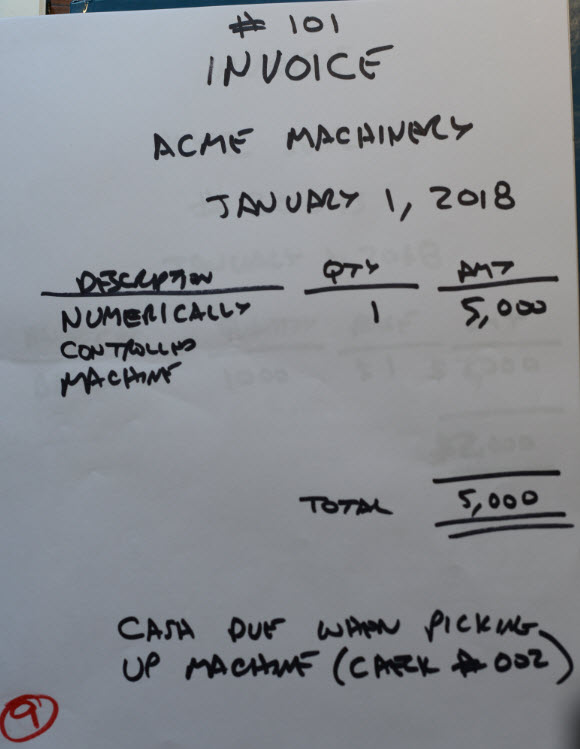 # 101
INVOICE
ACME MACHINERY
JANUARY 1, 2018
DESCRIPTION QTY AMT
NUMERICALLY 1 5,000
CONTROLLED
MACHINE
TOTAL 5,000
CASH DUE WHEN PICKING
UP MACHINE (CHECK # 002)
9